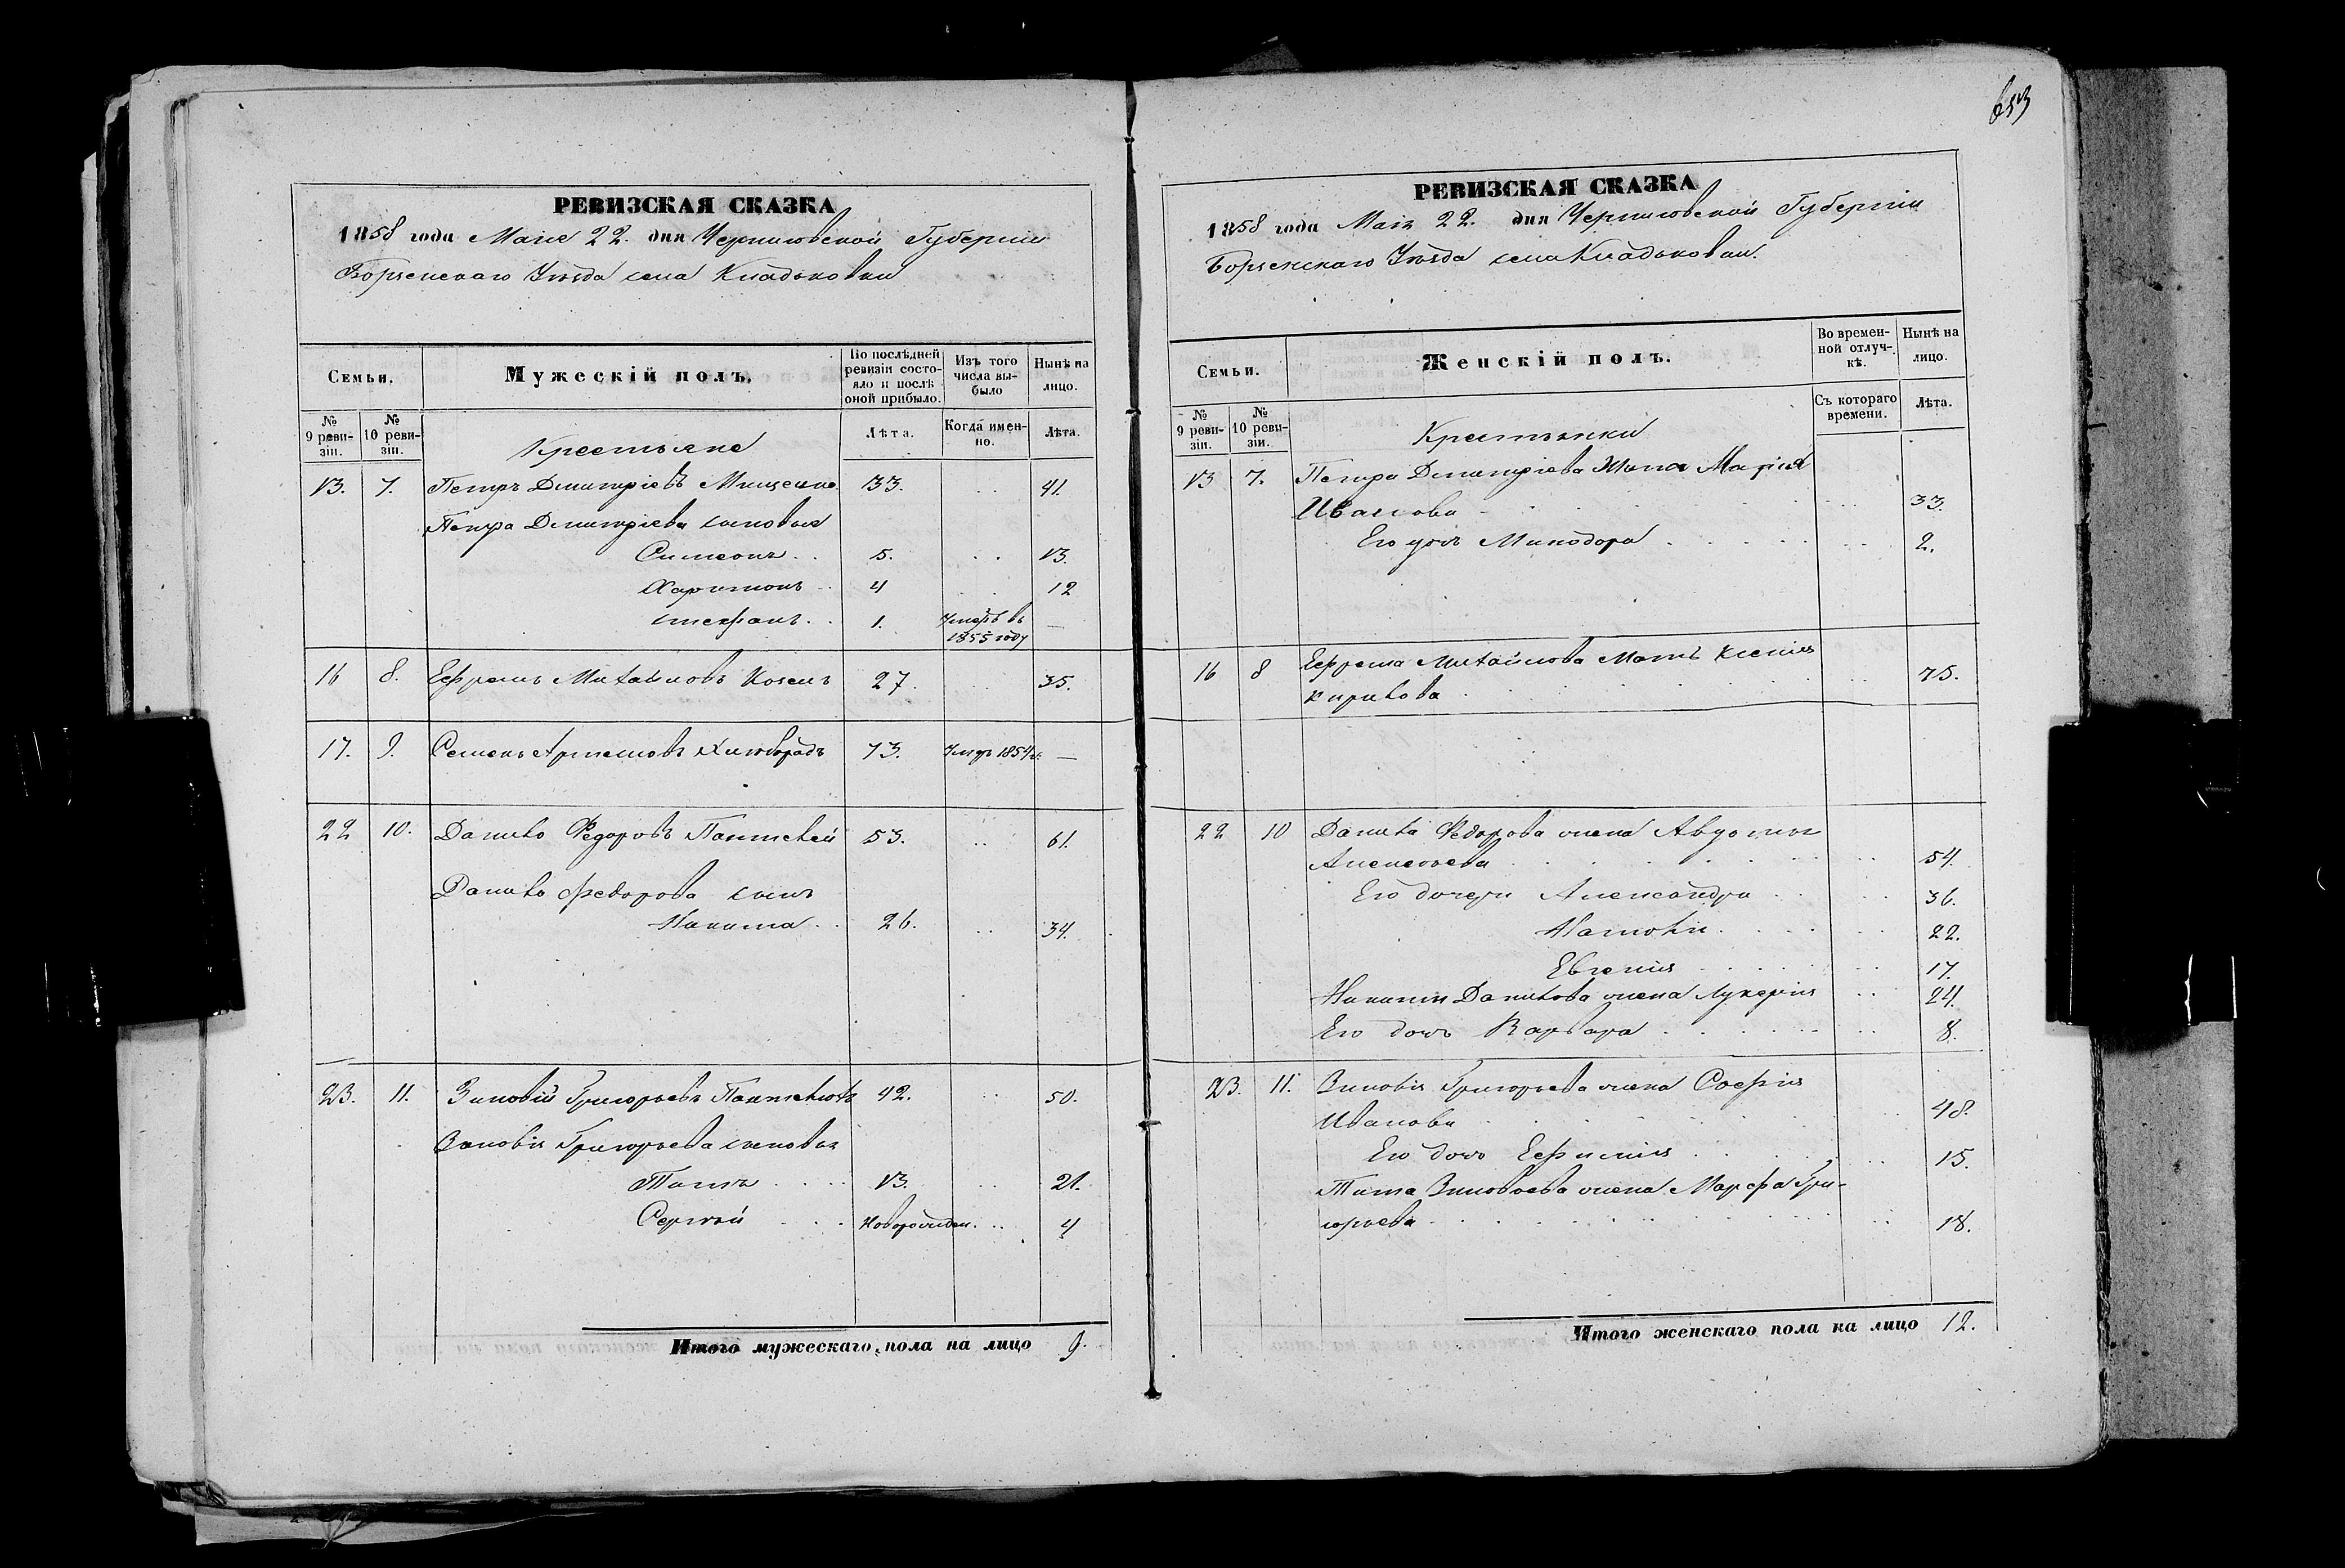 653
РЕВИЗСКАЯ СКАЗКА
1858 года Мая 22. дня Черниговской Губернiи
Борзенскаго Уѣзда села Кладьковки
Семьи.
Мужескiй полъ.
По послѣдней ревизiи состояло и послѣ оной прибыло.
Изъ того числа выбыло
Нынѣ на лицо.
№ 9 ревизiи.
№ 10 ревизiи.
Лѣта.
Когда именно.
Лѣта.
Крестьяне
13. 7. Петръ Дмитрiевъ Мищенко 33. .. 41.
Петра Дмитрiева сыновья
Симеонъ .. 5. .. 13.
Харитонъ .. 4 .. 12
Стефанъ .. 1. Умеръ въ —
1855 году
16 8. Ефремъ Михайловъ Козелъ 27. .. 35.
17. 9. Семенъ Артемовъ 73. Умеръ 1854 г. —
22 10. Данило Федоровъ 53. .. 61.
Данила Федорова сынъ
Никита .. 26. .. 34.
23. 11. Зиновiй Григорьевъ 42. .. 50.
Зиновiя Григорьева сыновья
Титъ .... 13. .. 21.
Сергѣй ... Новорожден. .. 4
Итого мужескаго пола на лицо 9.
РЕВИЗСКАЯ СКАЗКА
1858 года Мая 22. дня Черниговской Губернiи
Борзенскаго Уѣзда села Кладьковки.
Семьи.
Женскiй полъ.
Во временной отлучкѣ.
Нынѣ на лицо.
№ 9 ревизiи.
№ 10 ревизiи.
Съ котораго времени.
Лѣта.
Крестьянки
13 7. Петра Дмитрiева Жена Марiя
Иванова .. 33.
Его дочь Минодора .. 2.
16 8 Ефрема Михайлова Мать Ксенiя
Кирилова .. 75.
22 10 Данила Федорова жена Авдотья
Алексеева .. 54.
Его дочери Александра .. 36.
Наталiя .. 22.
Евгенiя .. 17.
Никиты Данилова жена Лукерiя .. 24.
Его дочь Варвара .. 8.
23. 11. Зиновiя Григорьева жена Софiя
Иванова .. 48.
Его дочь Ефимiя .. 15.
Тита Зиновьева жена Марфа Гри-
горьева .. 18.
Итого женскаго пола на лицо 12.